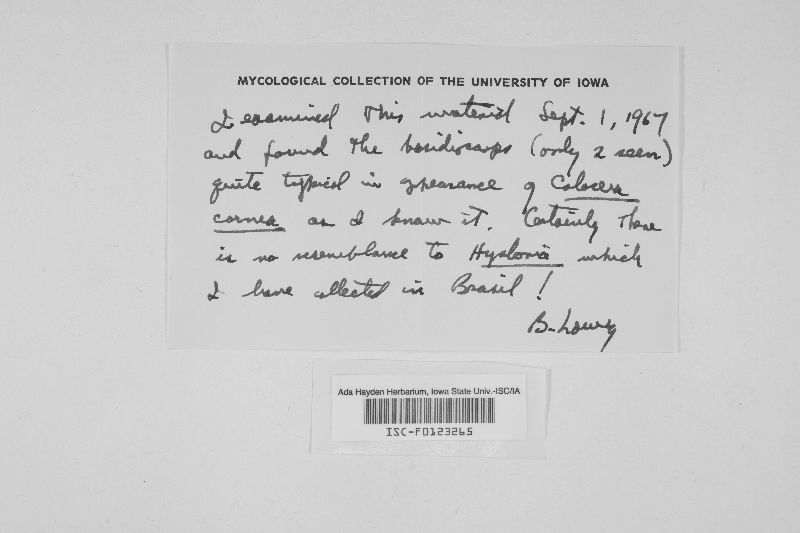 MYCOLOGICAL COLLECTION OF THE UNIVERSITY OF IOWA
I examined this material Sept. 1, 1967
and found the basidiocarps (only 2 seen)
quite typical in appearance of Calocera
cornea as I know it. Certainly there
is no resemblance to Hyaloria which
I have collected in Brasil!
B. Lowy
Ada Hayden Herbarium, Iowa State Univ.-ISC/IA
ISC-F0123265